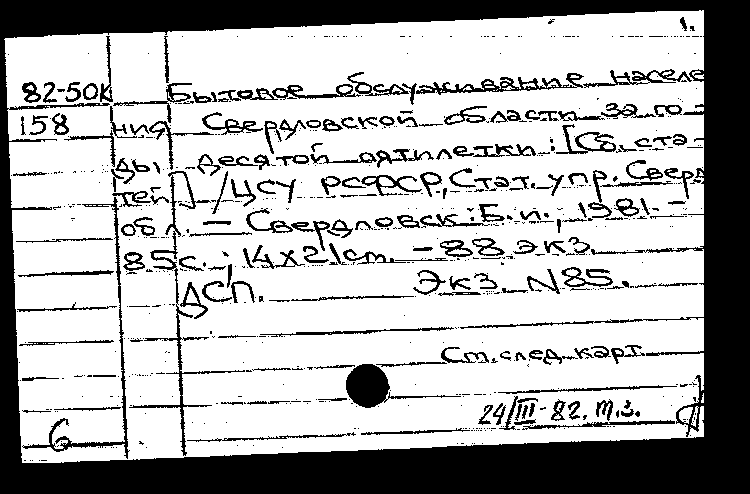 1.
82-50К Бытовое обслуживание населе
158 ния Свердловской области за го-
ды десятой пятилетки: [Сб. ста-
тей] / ЦСУ РСФСР, Стат. упр. Сверд
обл. — Свердловск: Б.и., 1981. —
85с.; 14x21cm. — 88 экз.
ДСП. Экз. N85.
Ст. след. карт.
24/III-82. т.з.
6